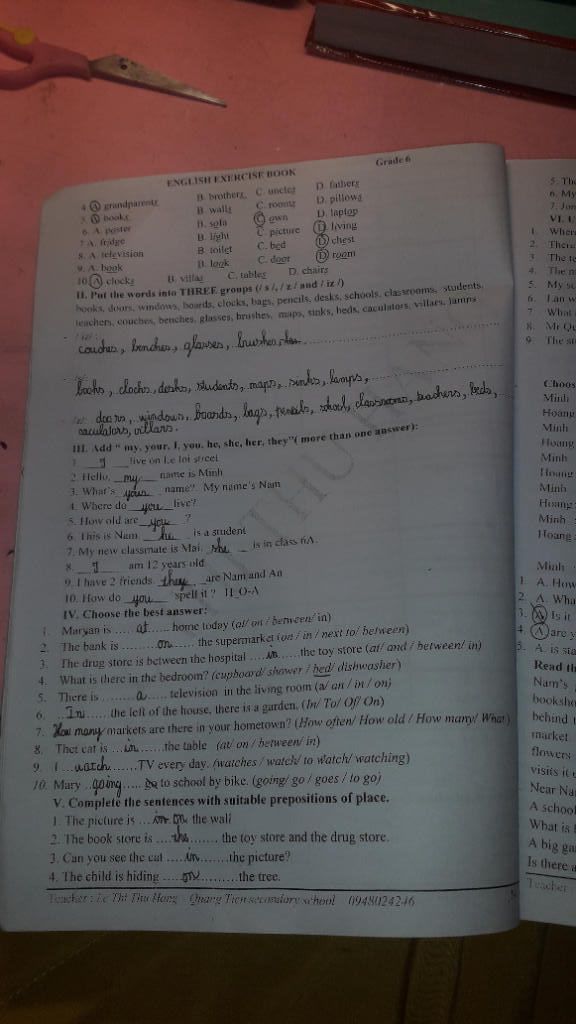 ENGLISH EXERCISE BOOK Grade 6
4. A. grandparents B. brothers C. uncles D. fathers
5. A. books B. walls C. rooms D. pillows
6. A. poster B. sofa C. own D. laptop
7 A. fridge B. light C. picture D. living
8. A. television B. toilet C. bed D. chest
9. A. book B. look C. door D. room
10. A clocks B. villas C. tables D. chairs
II. Put the words into THREE groups (/ s /, / z / and / iz /)
books, doors, windows, boards, clocks, bags, pencils, desks, schools, classrooms, students,
teachers, couches, benches, glasses, brushes, maps, sinks, beds, caculators, villars, lamps
/ iz/ :
couches, benches, glasses, brushes
books, clochs, desks, students, maps, sinks, lamps,
doors, windows, boards, bags, pencils, school, classrooms, teachers, beds,
caculators, villars.
III. Add “ my, your, I, you, he, she, her, they”( more than one answer):
1. I live on Le loi street
2. Hello, my name is Minh
3. What's your name? My name's Nam
4. Where do you live?
5. How old are you ?
6. This is Nam. he is a student
7. My new classmate is Mai. she is in class 6A.
8. I am 12 years old
9. I have 2 friends. they are Nam and An
10. How do you spell it ? H_O-A
IV. Choose the best answer:
1. Maryan is ..... at ..... home today (at/ on / between/ in)
2. The bank is ..... on ..... the supermarket (on / in / next to/ between)
3. The drug store is between the hospital ..... in ..... the toy store (at/ and / between/ in)
4. What is there in the bedroom? (cupboard/ shower / bed/ dishwasher)
5. There is ..... a ..... television in the living room (a/ an / in / on)
6. ... In ..... the left of the house, there is a garden. (In/ To/ Of/ On)
7. How many markets are there in your hometown? (How often/ How old / How many/ What)
8. Thet cat is ... in ..... the table (at/ on / between/ in)
9. I ... watch ..... TV every day. (watches / watch/ to watch/ watching)
10. Mary .. going ..... to school by bike. (going/ go / goes / to go)
V. Complete the sentences with suitable prepositions of place.
1. The picture is ... on ... the wall
2. The book store is .... the ....... the toy store and the drug store.
3. Can you see the cat .... in .........the picture?
4. The child is hiding ..... on .........the tree.
Teacher : Le Thi Thu Hang - Quang Tien secondary school 0948024246
5. The
6. My
VI. U
1. Where
2. There
3. The te
4. The n
5. My sc
6. I an w
7. What
8. Mr Qu
9 The st
Choos
Minh
Hoang
Minh
Hoang
Minh
Hoang
Minh
Hoang
Minh
Hoang
Minh
1. A. How
2. A. Wha
3. A. It
4. A are y
5. A. is sta
Read th
Nam's
booksho
behind t
market.
flowers
visits it
Near Na
A school
What is
A big ga
Is there a
Teacher